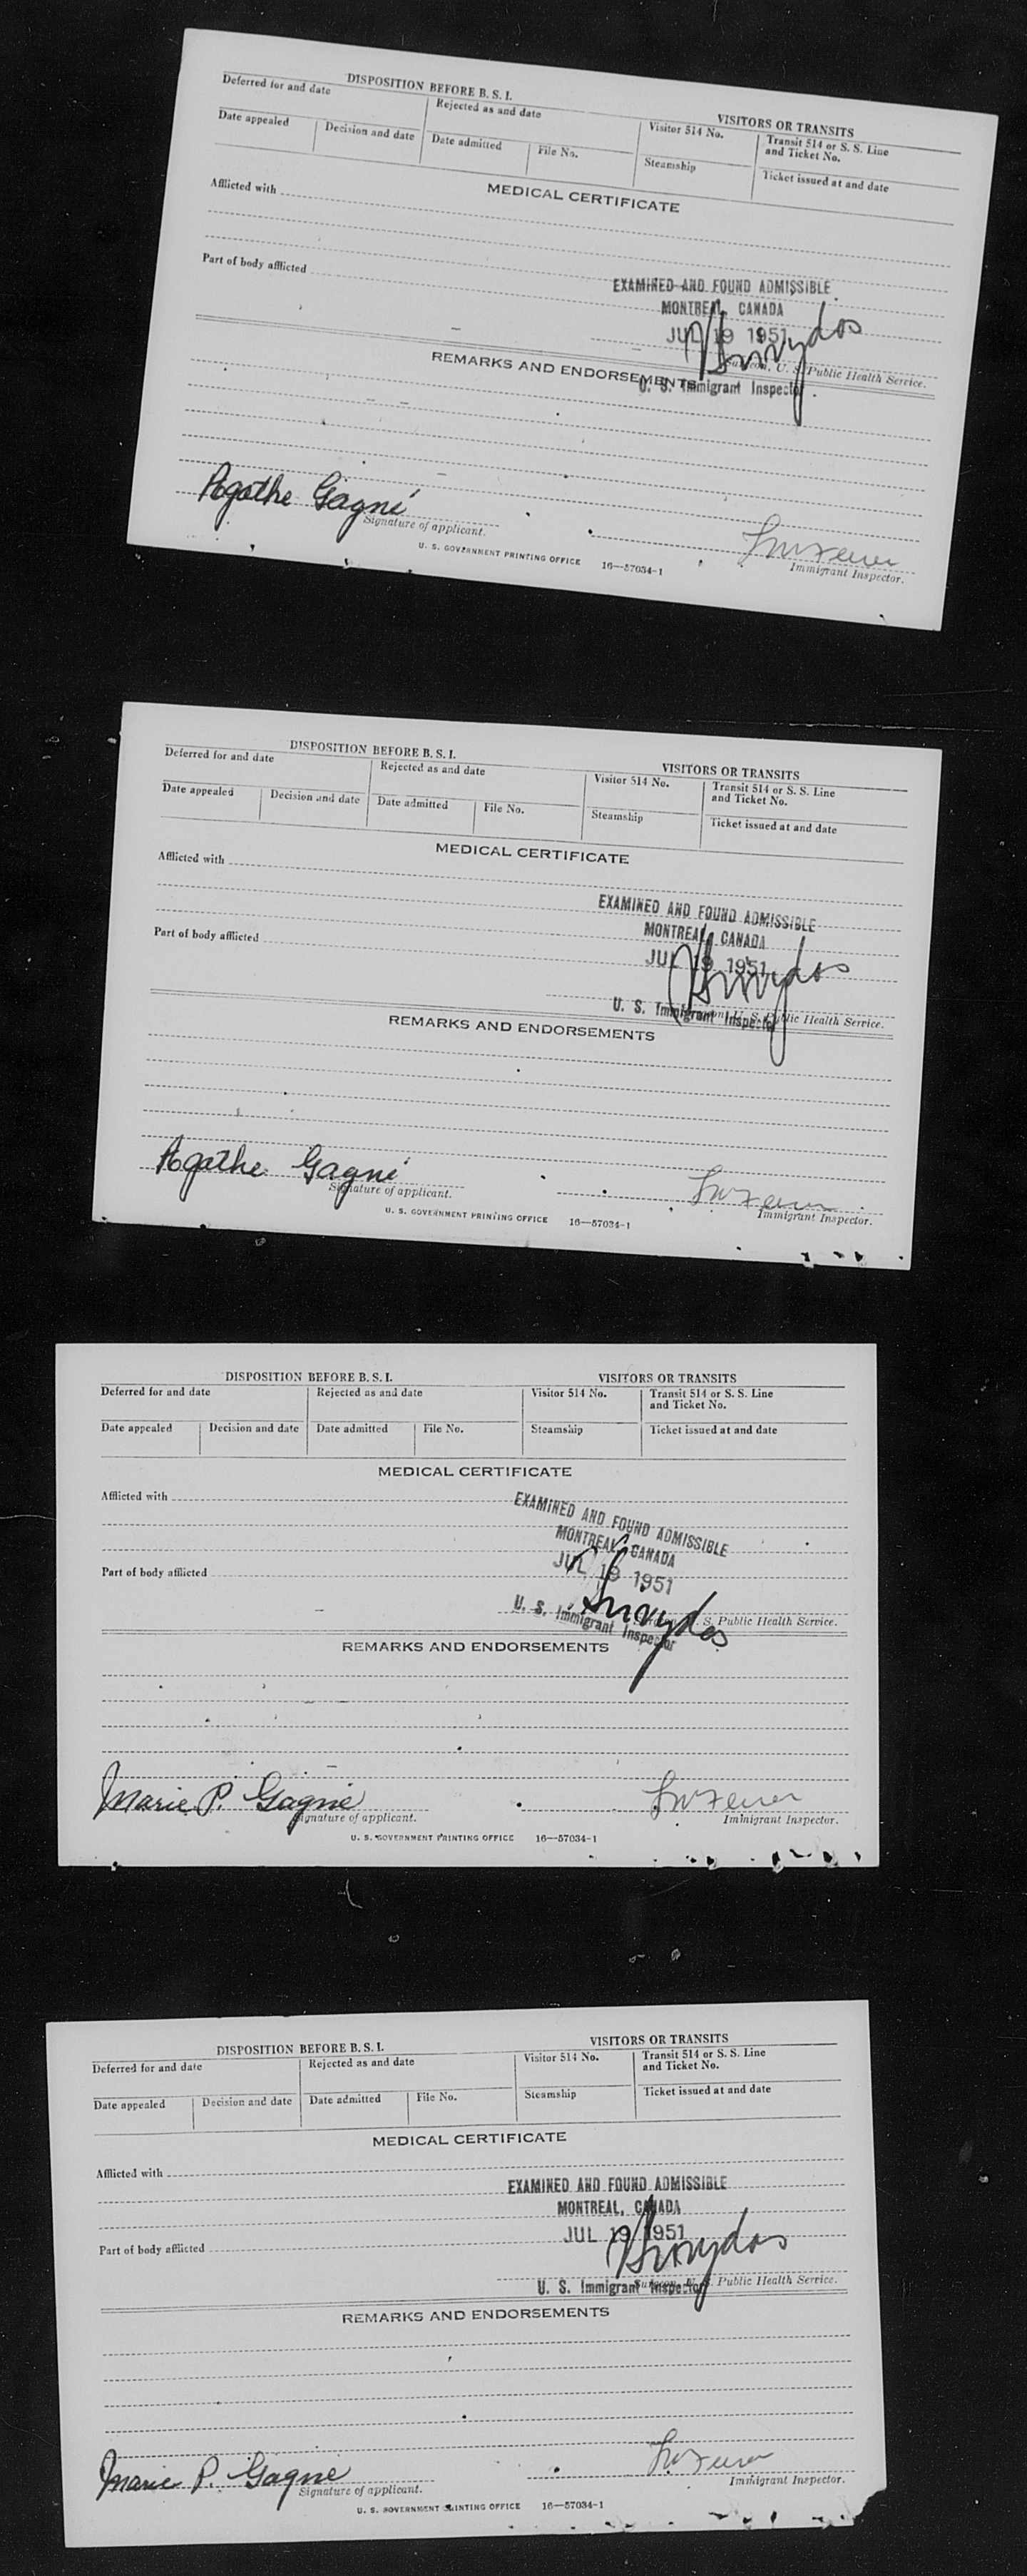 DISPOSITION BEFORE B. S. I.
VISITORS OR TRANSITS
Deferred for and date
Rejected as and date
Visitor 514 No.
Transit 514 or S. S. Line and Ticket No.
Date appealed
Decision and date
Date admitted
File No.
Steamship
Ticket issued at and date
MEDICAL CERTIFICATE
Afflicted with
Part of body afflicted
EXAMINED AND FOUND ADMISSIBLE
MONTREAL, CANADA
JUL 19 1951
Surgeon, U. S. Public Health Service.
U. S. Immigrant Inspector
REMARKS AND ENDORSEMENTS
Agathe Gagné
Signature of applicant.
Immigrant Inspector.
U. S. GOVERNMENT PRINTING OFFICE 16—57034-1
DISPOSITION BEFORE B. S. I.
VISITORS OR TRANSITS
Deferred for and date
Rejected as and date
Visitor 514 No.
Transit 514 or S. S. Line and Ticket No.
Date appealed
Decision and date
Date admitted
File No.
Steamship
Ticket issued at and date
MEDICAL CERTIFICATE
Afflicted with
Part of body afflicted
EXAMINED AND FOUND ADMISSIBLE
MONTREAL, CANADA
JUL 19 1951
Surgeon, U. S. Public Health Service.
U. S. Immigrant Inspector
REMARKS AND ENDORSEMENTS
Agathe Gagné
Signature of applicant.
Immigrant Inspector.
U. S. GOVERNMENT PRINTING OFFICE 16—57034-1
DISPOSITION BEFORE B. S. I.
VISITORS OR TRANSITS
Deferred for and date
Rejected as and date
Visitor 514 No.
Transit 514 or S. S. Line and Ticket No.
Date appealed
Decision and date
Date admitted
File No.
Steamship
Ticket issued at and date
MEDICAL CERTIFICATE
Afflicted with
Part of body afflicted
EXAMINED AND FOUND ADMISSIBLE
MONTREAL, CANADA
JUL 19 1951
U. S. Immigrant Inspector
S. Public Health Service.
REMARKS AND ENDORSEMENTS
Marie P. Gagné
Signature of applicant.
Immigrant Inspector.
U. S. GOVERNMENT PRINTING OFFICE 16—57034-1
DISPOSITION BEFORE B. S. I.
VISITORS OR TRANSITS
Deferred for and date
Rejected as and date
Visitor 514 No.
Transit 514 or S. S. Line and Ticket No.
Date appealed
Decision and date
Date admitted
File No.
Steamship
Ticket issued at and date
MEDICAL CERTIFICATE
Afflicted with
Part of body afflicted
EXAMINED AND FOUND ADMISSIBLE
MONTREAL, CANADA
JUL 19 1951
Surgeon, U. S. Public Health Service.
U. S. Immigrant Inspector
REMARKS AND ENDORSEMENTS
Marie P. Gagné
Signature of applicant.
Immigrant Inspector.
U. S. GOVERNMENT PRINTING OFFICE 16—57034-1